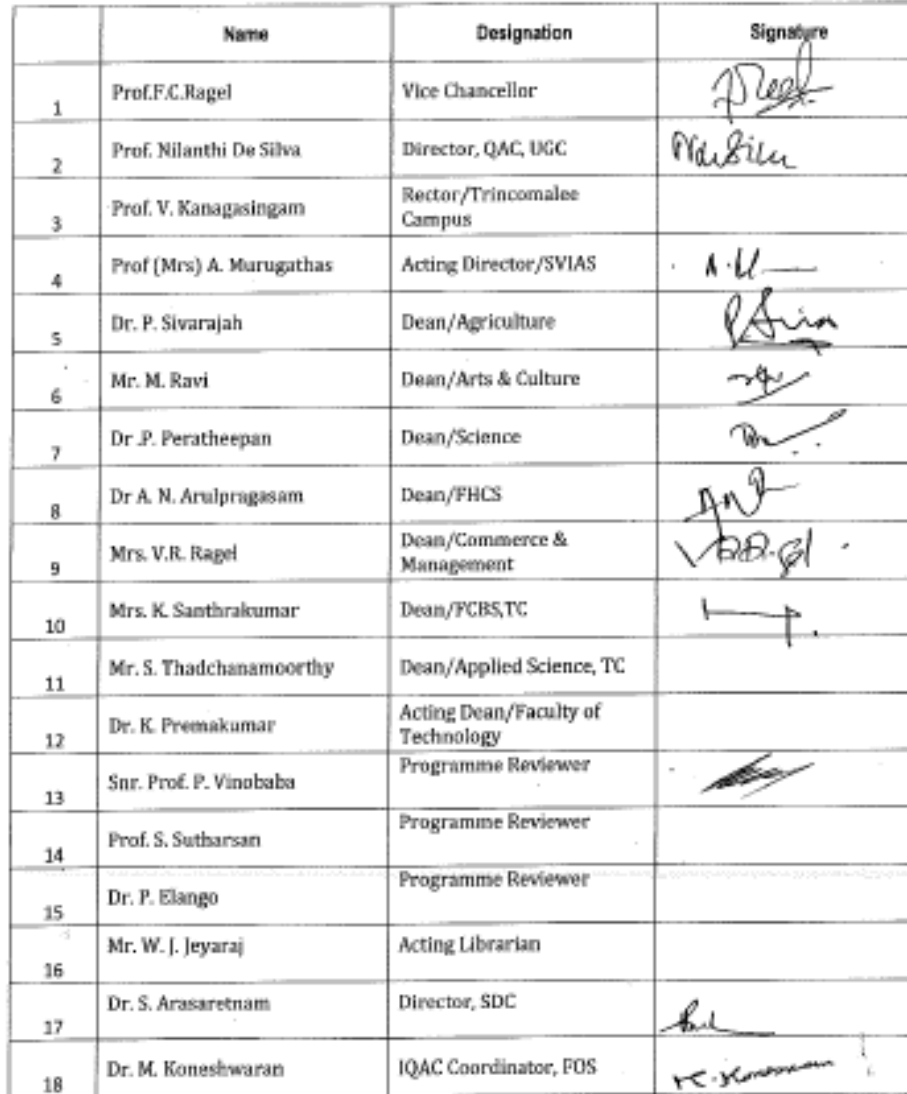 Name Designation Signature
1 Prof.F.C.Ragel Vice Chancellor
2 Prof. Nilanthi De Silva Director, QAC, UGC
3 Prof. V. Kanagasingam Rector/Trincomalee
Campus
4 Prof (Mrs) A. Murugathas Acting Director/SVIAS
5 Dr. P. Sivarajah Dean/Agriculture
6 Mr. M. Ravi Dean/Arts & Culture
7 Dr .P. Peratheepan Dean/Science
8 Dr A. N. Arulpragasam Dean/FHCS
9 Mrs. V.R. Ragel Dean/Commerce &
Management
10 Mrs. K. Santhrakumar Dean/FCBS,TC
11 Mr. S. Thadchanamoorthy Dean/Applied Science, TC
12 Dr. K. Premakumar Acting Dean/Faculty of
Technology
13 Snr. Prof. P. Vinobaba Programme Reviewer
14 Prof. S. Sutharsan Programme Reviewer
15 Dr. P. Elango Programme Reviewer
16 Mr. W. J. Jeyaraj Acting Librarian
17 Dr. S. Arasaretnam Director, SDC
18 Dr. M. Koneshwaran IQAC Coordinator, FOS